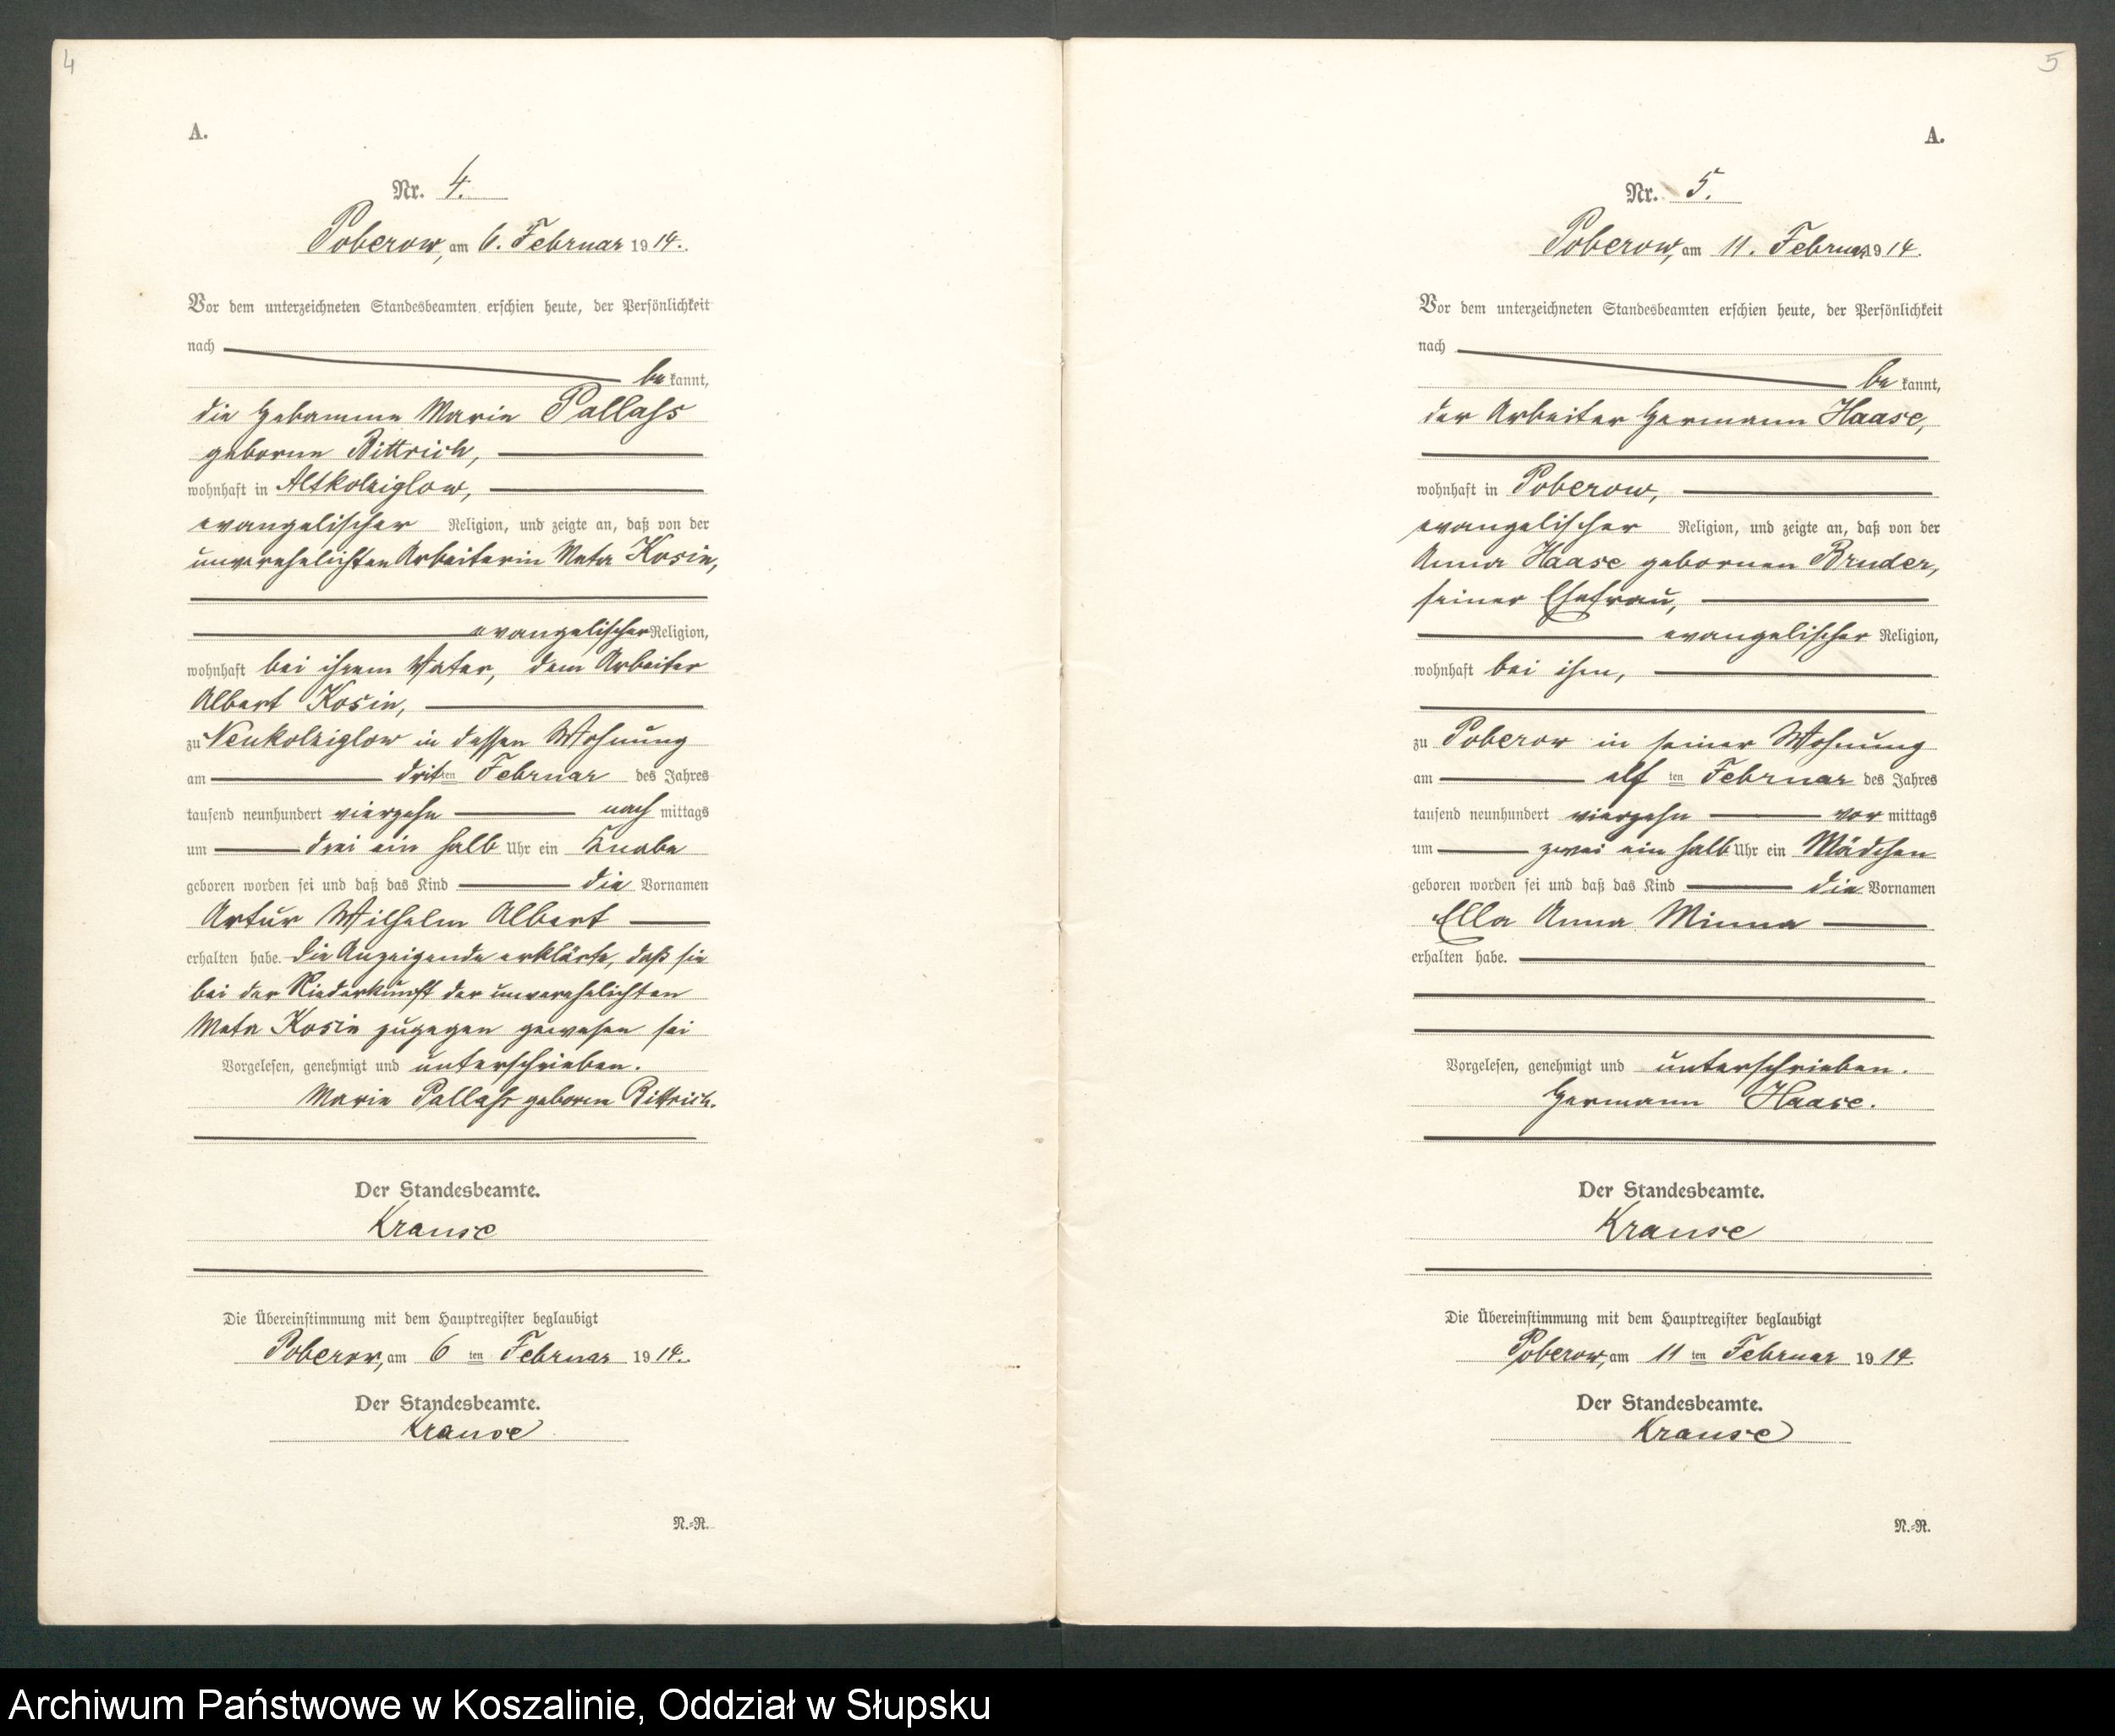 4
A.
Nr. 4.
Poberow, am 6. Februar 1914.
Vor dem unterzeichneten Standesbeamten erschien heute, der Persönlichkeit
nach
bekannt,
die Hebamme Marie Pallaß
geborne Bittrich,
wohnhaft in Altkolziglow,
evangelischer Religion, und zeigte an, daß von der
unverehelichten Arbeiterin Meta Kosin,
evangelischer Religion,
wohnhaft bei ihrem Vater, dem Arbeiter
Albert Kosin,
zu Neukolziglow in dessen Wohnung
am dritten Februar des Jahres
tausend neunhundert vierzehn nachmittags
um drei ein halb Uhr ein Knabe
geboren worden sei und daß das Kind die Vornamen
Artur Wilhelm Albert
erhalten habe. Die Anzeigende erklärte, daß sie
bei der Niederkunft der unverehelichten
Meta Kosin zugegen gewesen sei
Vorgelesen, genehmigt und unterschrieben.
Marie Pallaß geborne Bittrich.
Der Standesbeamte.
Krause
Die Übereinstimmung mit dem Hauptregister beglaubigt
Poberow, am 6ten Februar 1914.
Der Standesbeamte.
Krause
N.-R.
5
A.
Nr. 5.
Poberow, am 11. Februar 1914.
Vor dem unterzeichneten Standesbeamten erschien heute, der Persönlichkeit
nach
bekannt,
der Arbeiter Hermann Haase,
wohnhaft in Poberow,
evangelischer Religion, und zeigte an, daß von der
Anna Haase gebornen Bruder,
seiner Ehefrau,
evangelischer Religion,
wohnhaft bei ihm,
zu Poberow in seiner Wohnung
am elften Februar des Jahres
tausend neunhundert vierzehn vormittags
um zwei ein halb Uhr ein Mädchen
geboren worden sei und daß das Kind die Vornamen
Ella Anna Minna
erhalten habe.
Vorgelesen, genehmigt und unterschrieben.
Hermann Haase.
Der Standesbeamte.
Krause
Die Übereinstimmung mit dem Hauptregister beglaubigt
Poberow, am 11ten Februar 1914.
Der Standesbeamte.
Krause
N.-R.
Archiwum Państwowe w Koszalinie, Oddział w Słupsku